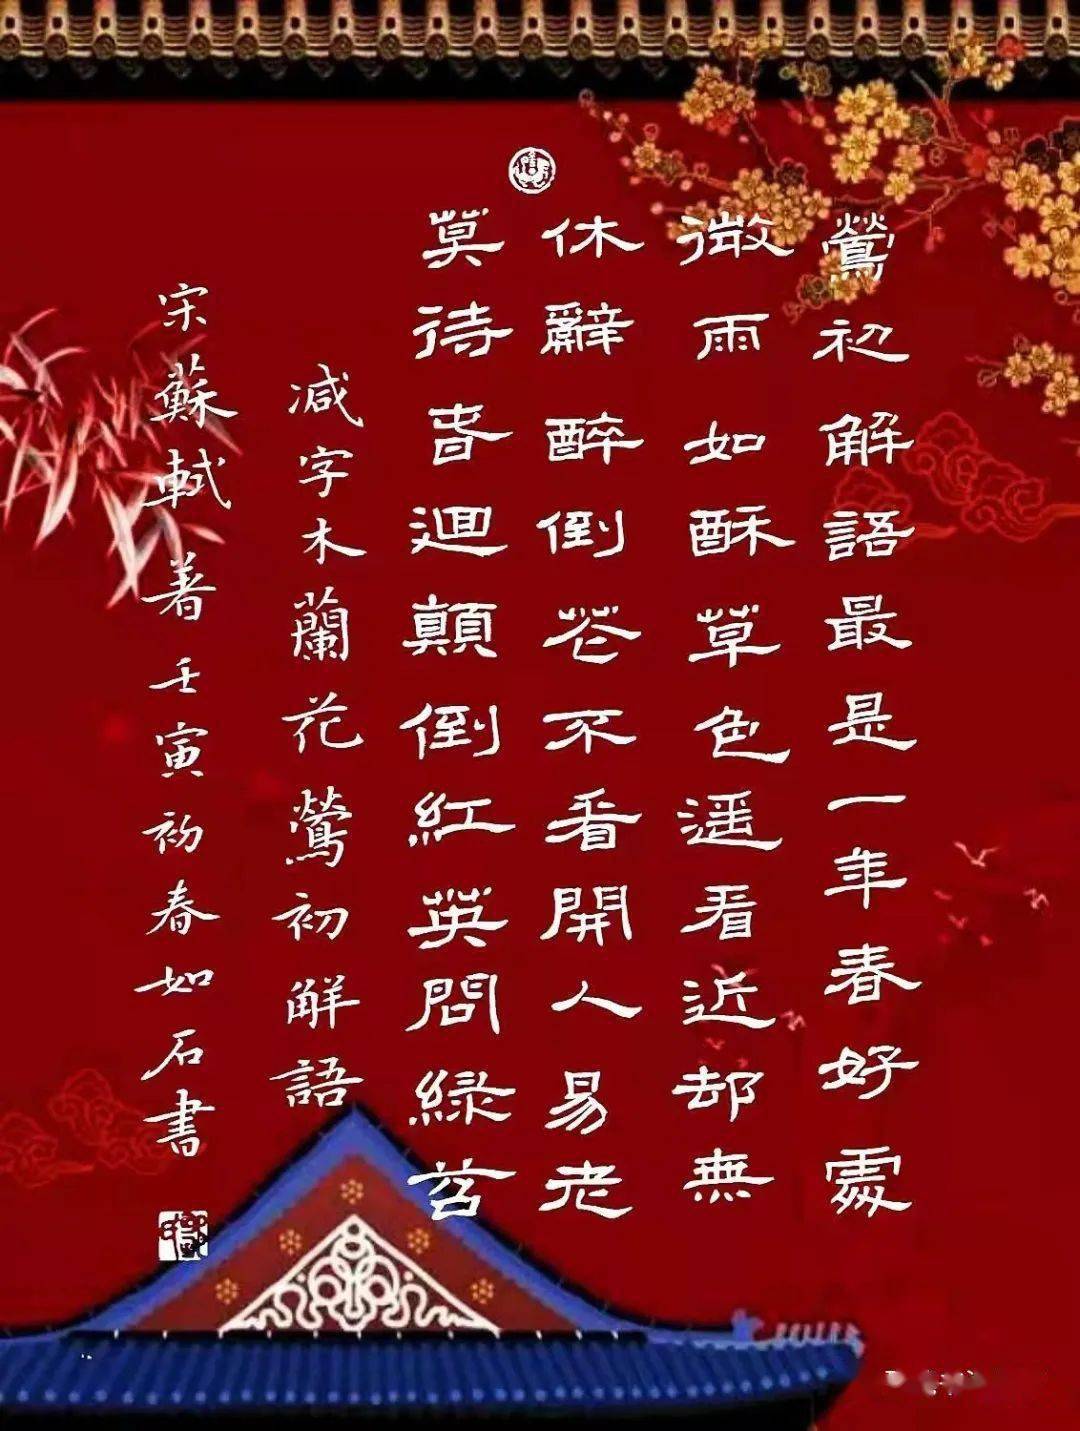 鶯初解語最是一年春好處
微雨如酥草色遥看近却無
休辭醉倒花不看開人易老
莫待春迴顛倒紅英間綠苔
減字木蘭花鶯初解語
宋蘇軾著壬寅初春如石書